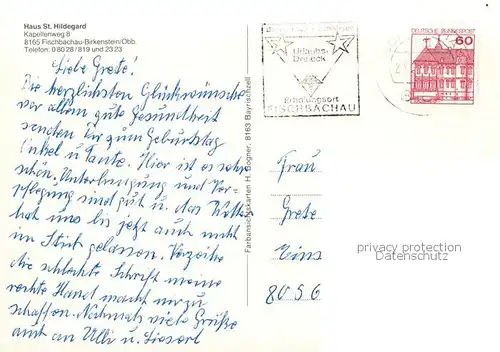 Haus St. Hildegard
Kapellenweg 8
8165 Fischbachau-Birkenstein/Obb.
Telefon: 0 80 28 / 819 und 23 23
Liebe Grete!
Die herzlichsten Glückwünsche
vor allem gute Gesundheit
senden Dir zum Geburtstag
Onkel u Tante. Hier ist es sehr
schön. Unterbringung und Ver-
pflegung sind gut u. das Wetter
hat uns bis jetzt auch nicht
im Stich gelassen. Verzeihe
die schlechte Schrift meine
rechte Hand macht mir zu
schaffen. Nochmals viele Grüße
auch an Ulli u. Lieserl
Farbansichtskarten H. Bogner, 8163 Bayrischzell
Urlaubs-
Dreieck
Erholungsort
FISCHBACHAU
DEUTSCHE BUNDESPOST
60
Frau
Grete
8056
privacy protection
Datenschutz